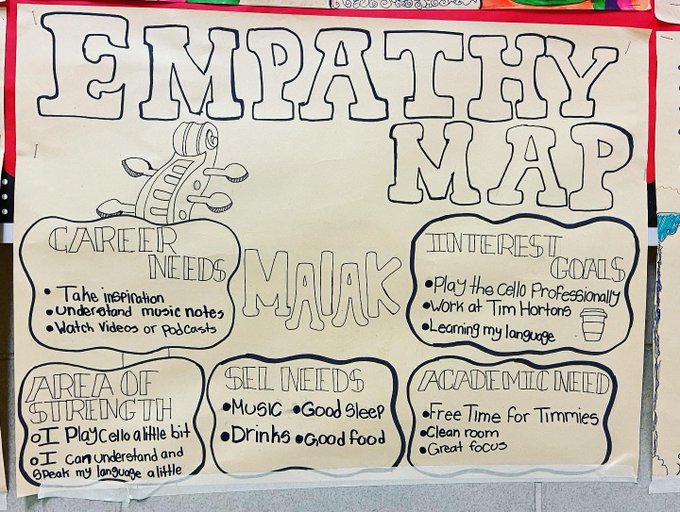 EMPATHY
MAP
CAREER
NEEDS
• Take inspiration
• understand music notes
• Watch Videos or Podcasts
MALAK
INTEREST
GOALS
• Play the cello Professionally
• Work at Tim Hortons
• Learning my language
AREA OF
STRENGTH
o I Play Cello a little bit
o I can understand and
speak my language a little
SEL NEEDS
• Music • Good sleep
• Drinks • Good food
ACADEMIC NEED
• Free Time for Timmies
• Clean room
• Great focus